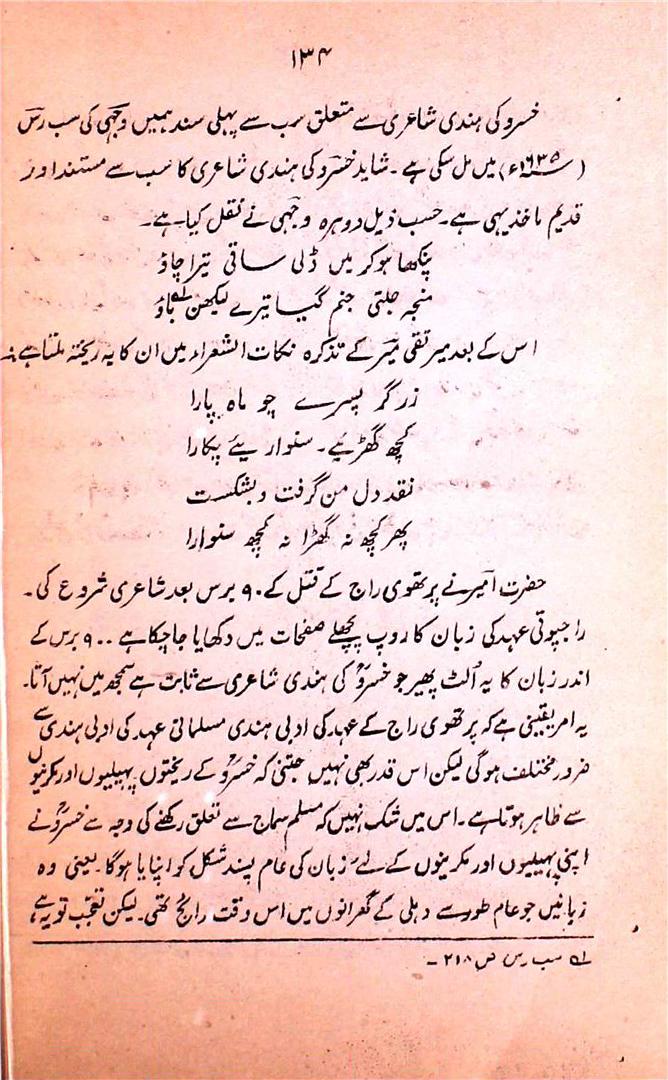 ۱۳۴
خسرو کی ہندی شاعری سے متعلق سب سے پہلی سند ہمیں وجہی کی سب رس
(۱۶۳۵ء) میں مل سکی ہے۔ شاید خسرو کی ہندی شاعری کا سب سے مستند اور
قدیم ماخذ یہی ہے۔ حسب ذیل دوہرہ وجہی نے نقل کیا ہے۔
پنکھا ہو کر میں ڈلی ساقی تیرا چاؤ
منجہ جلتی جنم گیا تیرے لیکھن باؤ ؎۱
اس کے بعد میر تقی میر کے تذکرہ نکات الشعراء میں ان کا یہ ریختہ ملتا ہے:۔
زر گر پسرے چو ماہ پارا
کچھ گھڑئیے۔ سنواریئے پکارا
نقد دل من گرفت و بشکست
پھر کچھ نہ گھڑا نہ کچھ سنوارا
حضرت امیر نے پرتھوی راج کے قتل کے ۹۰ برس بعد شاعری شروع کی۔
راجپوتی عہد کی زبان کا روپ پچھلے صفحات میں دکھایا جا چکا ہے ۔۔ ۹۰ برس کے
اندر زبان کا یہ اُلٹ پھیر جو خسروؒ کی ہندی شاعری سے ثابت ہے سمجھ میں نہیں آتا۔
یہ امر یقینی ہے کہ پرتھوی راج کے عہد کی ادبی ہندی مسلمانی عہد کی ادبی ہندی سے
ضرور مختلف ہوگی لیکن اس قدر بھی نہیں جتنی کہ خسروؒ کے ریختوں پہیلیوں اور مکرنیوں
سے ظاہر ہوتا ہے۔ اس میں شک نہیں کہ مسلم سماج سے تعلق رکھنے کی وجہ سے خسروؒ نے
اپنی پہیلیوں اور مکرینوں کے لئے زبان کی عام پسند شکل کو اپنایا ہوگا۔ یعنی وہ
زبانیں جو عام طور سے دہلی کے گھرانوں میں اس وقت رائج تھی۔ لیکن تعجب تو یہ ہے،
؎۱ سب رس ص ۲۱۸ ۔